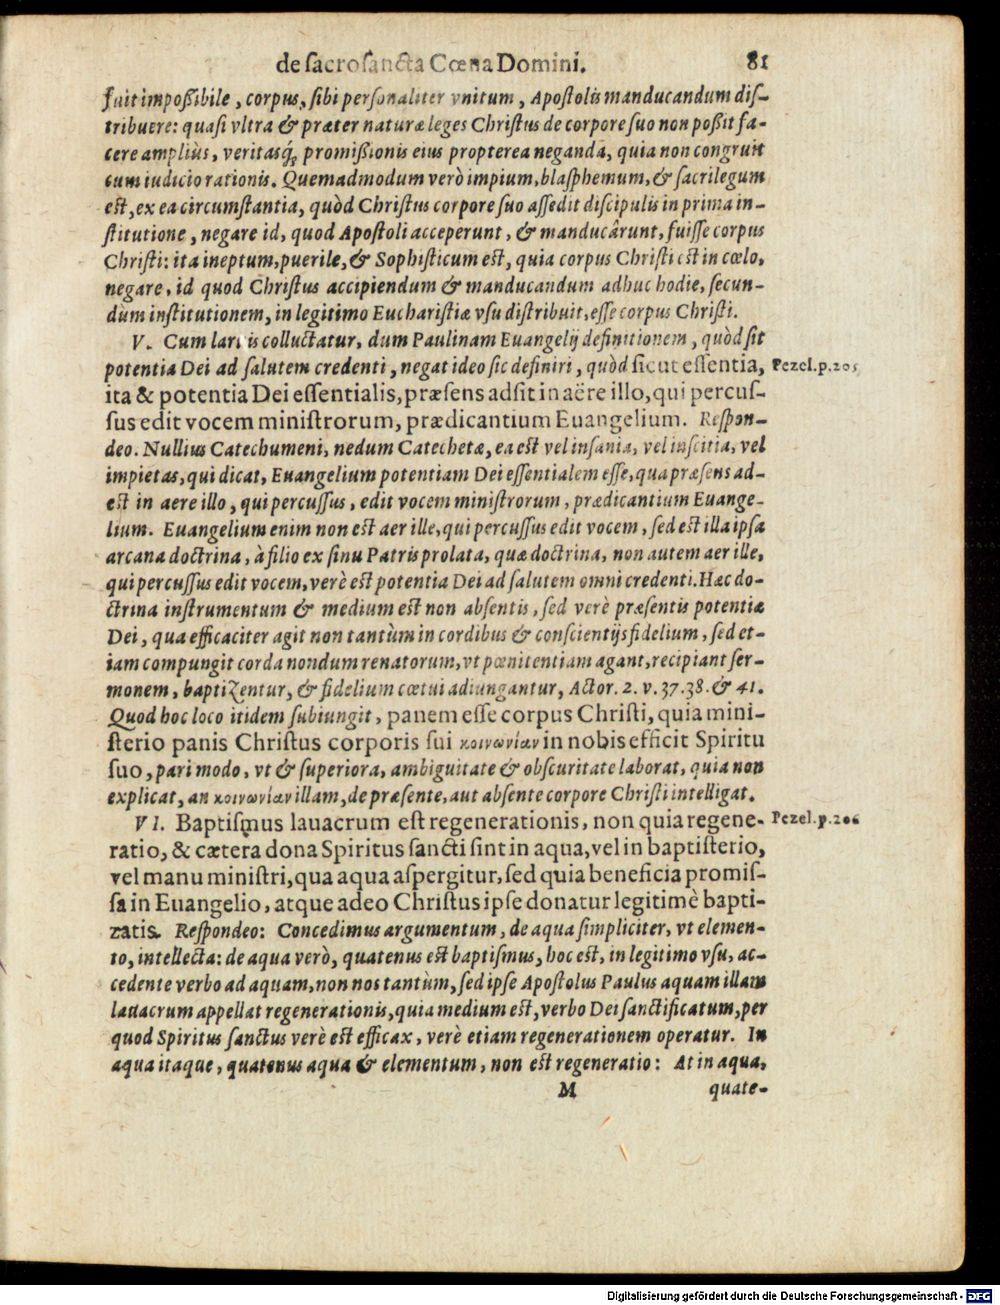 de sacrosancta Cœna Domini. 81
fuit impoßibile, corpus, sibi personaliter vnitum, Apostolis manducandum dis-
tribuere: quasi vltra & præter naturæ leges Christus de corpore suo non poßit fa-
cere ampliùs, veritasq́ꝫ promißionis eius propterea neganda, quia non congruit
cum iudicio rationis. Quemadmodum verò impium, blasphemum, & sacrilegum
est, ex ea circumstantia, quòd Christus corpore suo assedit discipulis in prima in-
stitutione, negare id, quod Apostoli acceperunt, & manducârunt, fuisse corpus
Christi: ita ineptum, puerile, & Sophisticum est, quia corpus Christi est in cœlo,
negare, id quod Christus accipiendum & manducandum adhuc hodie, secun-
dùm institutionem, in legitimo Eucharistiæ vsu distribuit, esse corpus Christi.
V. Cum larvis colluctatur, dum Paulinam Euangelij definitionem, quòd sit
potentia Dei ad salutem credenti, negat ideo sic definiri, quòd sicut essentia, Pezel.p.205
ita & potentia Dei essentialis, præsens adsit in aëre illo, qui percus-
sus edit vocem ministrorum, prædicantium Euangelium. Respon-
deo. Nullius Catechumeni, nedum Catechetæ, ea est vel insania, vel inscitia, vel
impietas, qui dicat, Euangelium potentiam Dei essentialem esse, qua præsens ad-
est in aere illo, qui percussus, edit vocem ministrorum, prædicantium Euange-
lium. Euangelium enim non est aer ille, qui percussus edit vocem, sed est illa ipsa
arcana doctrina, à filio ex sinu Patris prolata, quæ doctrina, non autem aer ille,
qui percussus edit vocem, verè est potentia Dei ad salutem omni credenti. Hæc do-
ctrina instrumentum & medium est non absentis, sed verè præsentis potentiæ
Dei, qua efficaciter agit non tantùm in cordibus & conscientijs fidelium, sed et-
iam compungit corda nondum renatorum, vt pœnitentiam agant, recipiant ser-
monem, baptizentur, & fidelium cœtui adiungantur, Actor. 2. v. 37. 38. & 41.
Quod hoc loco itidem subiungit, panem esse corpus Christi, quia mini-
sterio panis Christus corporis sui κοινωνίαν in nobis efficit Spiritu
suo, pari modo, vt & superiora, ambiguitate & obscuritate laborat, quia non
explicat, an κοινωνίαν illam, de præsente, aut absente corpore Christi intelligat.
VI. Baptismus lauacrum est regenerationis, non quia regene- Pezel.p.206
ratio, & cætera dona Spiritus sancti sint in aqua, vel in baptisterio,
vel manu ministri, qua aqua aspergitur, sed quia beneficia promis-
sa in Euangelio, atque adeo Christus ipse donatur legitimè bapti-
zatis. Respondeo: Concedimus argumentum, de aqua simpliciter, vt elemen-
to, intellecta: de aqua verò, quatenus est baptismus, hoc est, in legitimo vsu, ac-
cedente verbo ad aquam, non nos tantùm, sed ipse Apostolus Paulus aquam illam
lauacrum appellat regenerationis, quia medium est, verbo Dei sanctificatum, per
quod Spiritus sanctus verè est efficax, verè etiam regenerationem operatur. In
aqua itaque, quatenus aqua & elementum, non est regeneratio: At in aqua,
M quate-
Digitalisierung gefördert durch die Deutsche Forschungsgemeinschaft - DFG